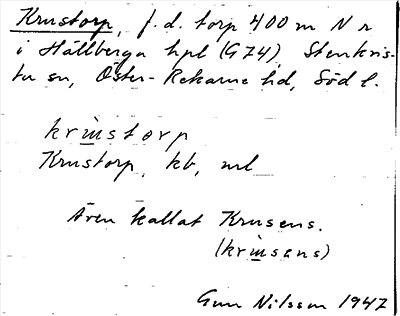 Krustorp, f.d. torp 400 m N r
i Hällberga hpl (G74), Stenkvis-
ta sn, Öster-Rekarne hd, Söd l.
krùstorp
Krustorp, kb, ml
Även kallat Krusens.
(krùsens)
Gun Nilsson 1947